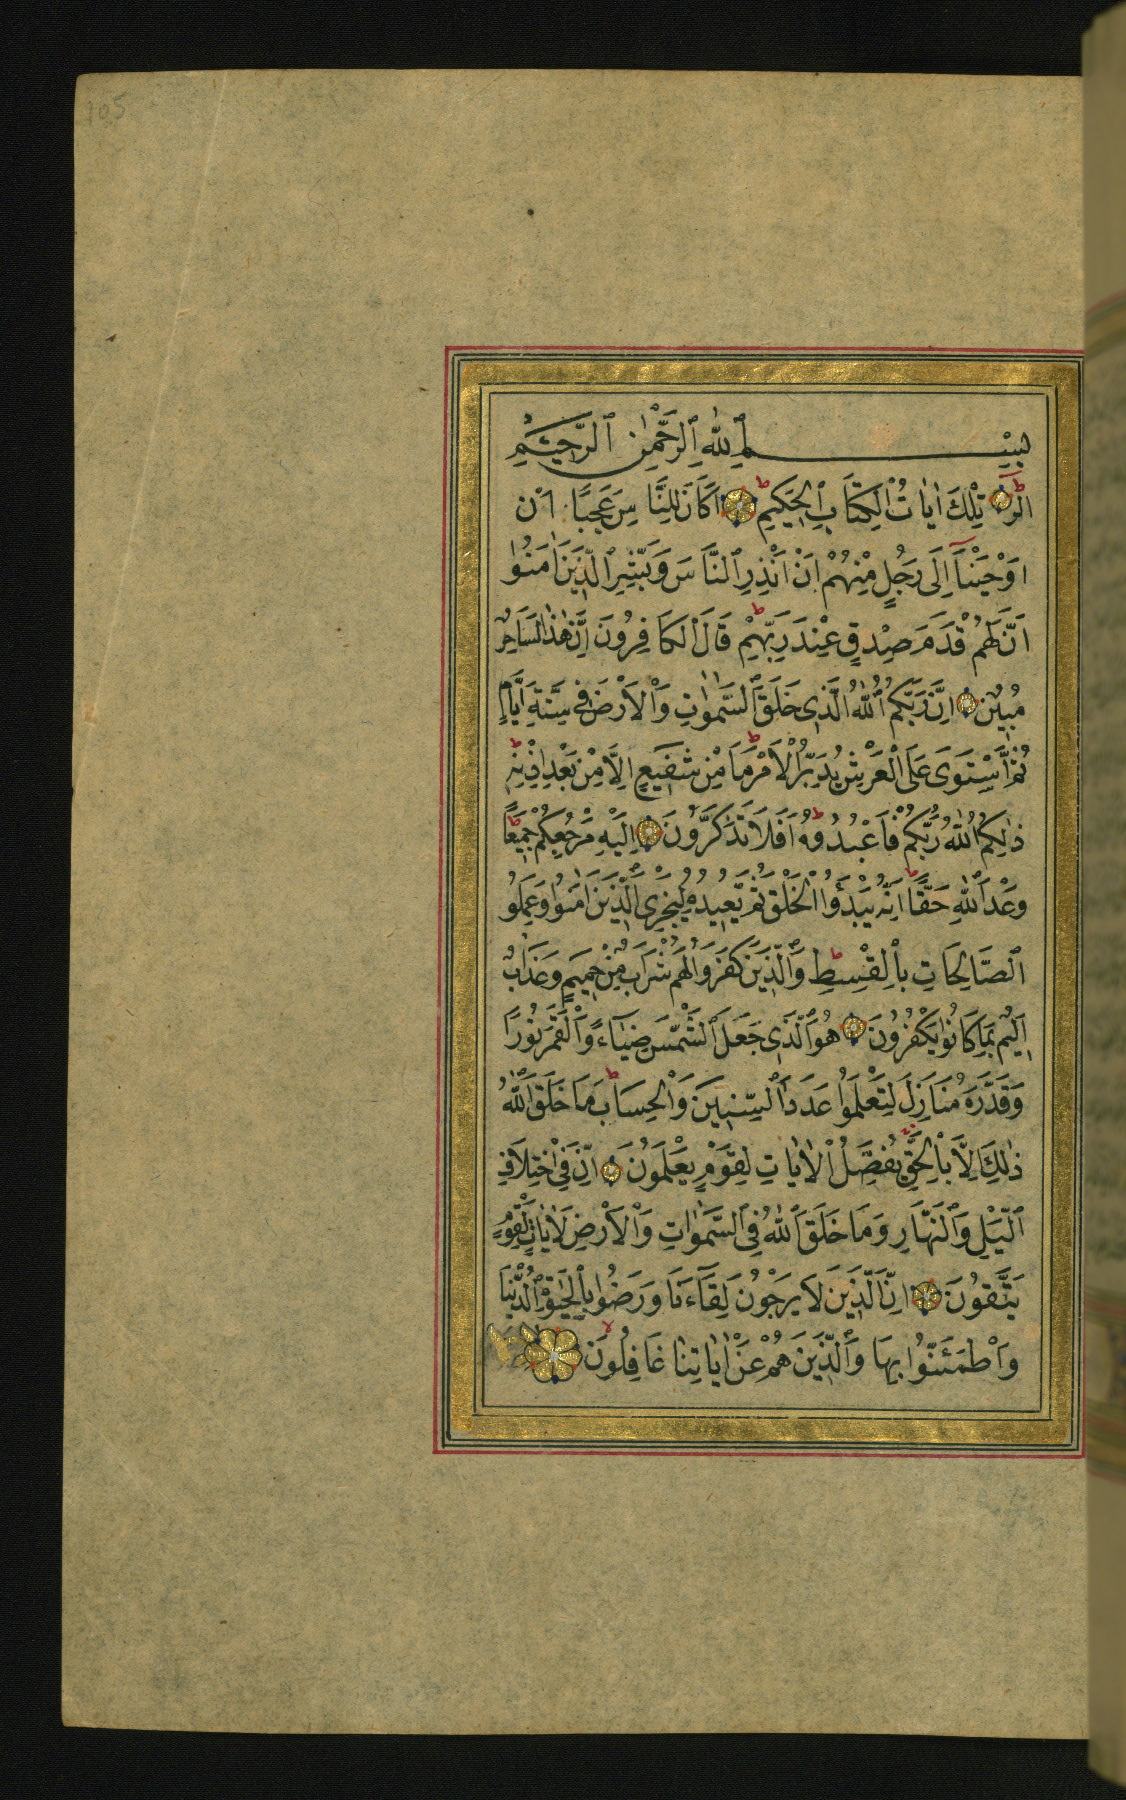 105
بِسْمِ ٱللّٰهِ ٱلرَّحْمٰنِ ٱلرَّحِيمِ
الٓرٰ تِلْكَ اٰيَاتُ ٱلْكِتَابِ ٱلْحَكِيمِ اَكَانَ لِلنَّاسِ عَجَبًا اَنْ
اَوْحَيْنَآ اِلَى رَجُلٍ مِنْهُمْ اَنْ اَنْذِرِ ٱلنَّاسَ وَبَشِّرِ ٱلَّذِينَ اٰمَنُوا
اَنَّ لَهُمْ قَدَمَ صِدْقٍ عِنْدَ رَبِّهِمْ قَالَ ٱلْكَافِرُونَ اِنَّ هٰذَا لَسَاحِرٌ
مُبِينٌ اِنَّ رَبَّكُمُ ٱللّٰهُ ٱلَّذِى خَلَقَ ٱلسَّمٰوَاتِ وَٱلْاَرْضَ فِى سِتَّةِ اَيَّامٍ
ثُمَّ ٱسْتَوَى عَلَى ٱلْعَرْشِ يُدَبِّرُ ٱلْاَمْرَ مَا مِنْ شَفِيعٍ اِلَّا مِنْ بَعْدِ اِذْنِهِ
ذٰلِكُمُ ٱللّٰهُ رَبُّكُمْ فَاعْبُدُوهُ اَفَلَا تَذَكَّرُونَ اِلَيْهِ مَرْجِعُكُمْ جَمِيعًا
وَعْدَ ٱللّٰهِ حَقًّا اِنَّهُ يَبْدَؤُا ٱلْخَلْقَ ثُمَّ يُعِيدُهُ لِيَجْزِىَ ٱلَّذِينَ اٰمَنُوا وَعَمِلُوا
ٱلصَّالِحَاتِ بِٱلْقِسْطِ وَٱلَّذِينَ كَفَرُوا لَهُمْ شَرَابٌ مِنْ حَمِيمٍ وَعَذَابٌ
اَلِيمٌ بِمَا كَانُوا يَكْفُرُونَ هُوَ ٱلَّذِى جَعَلَ ٱلشَّمْسَ ضِيَآءً وَٱلْقَمَرَ نُورًا
وَقَدَّرَهُ مَنَازِلَ لِتَعْلَمُوا عَدَدَ ٱلسِّنِينَ وَٱلْحِسَابَ مَا خَلَقَ ٱللّٰهُ
ذٰلِكَ اِلَّا بِٱلْحَقِّ يُفَصِّلُ ٱلْاٰيَاتِ لِقَوْمٍ يَعْلَمُونَ اِنَّ فِى ٱخْتِلَافِ
ٱلَّيْلِ وَٱلنَّهَارِ وَمَا خَلَقَ ٱللّٰهُ فِى ٱلسَّمٰوَاتِ وَٱلْاَرْضِ لَاٰيَاتٍ لِقَوْمٍ
يَتَّقُونَ اِنَّ ٱلَّذِينَ لَا يَرْجُونَ لِقَآءَنَا وَرَضُوا بِٱلْحَيٰوةِ ٱلدُّنْيَا
وَٱطْمَئَنُّوا بِهَا وَٱلَّذِينَ هُمْ عَنْ اٰيَاتِنَا غَافِلُونَ